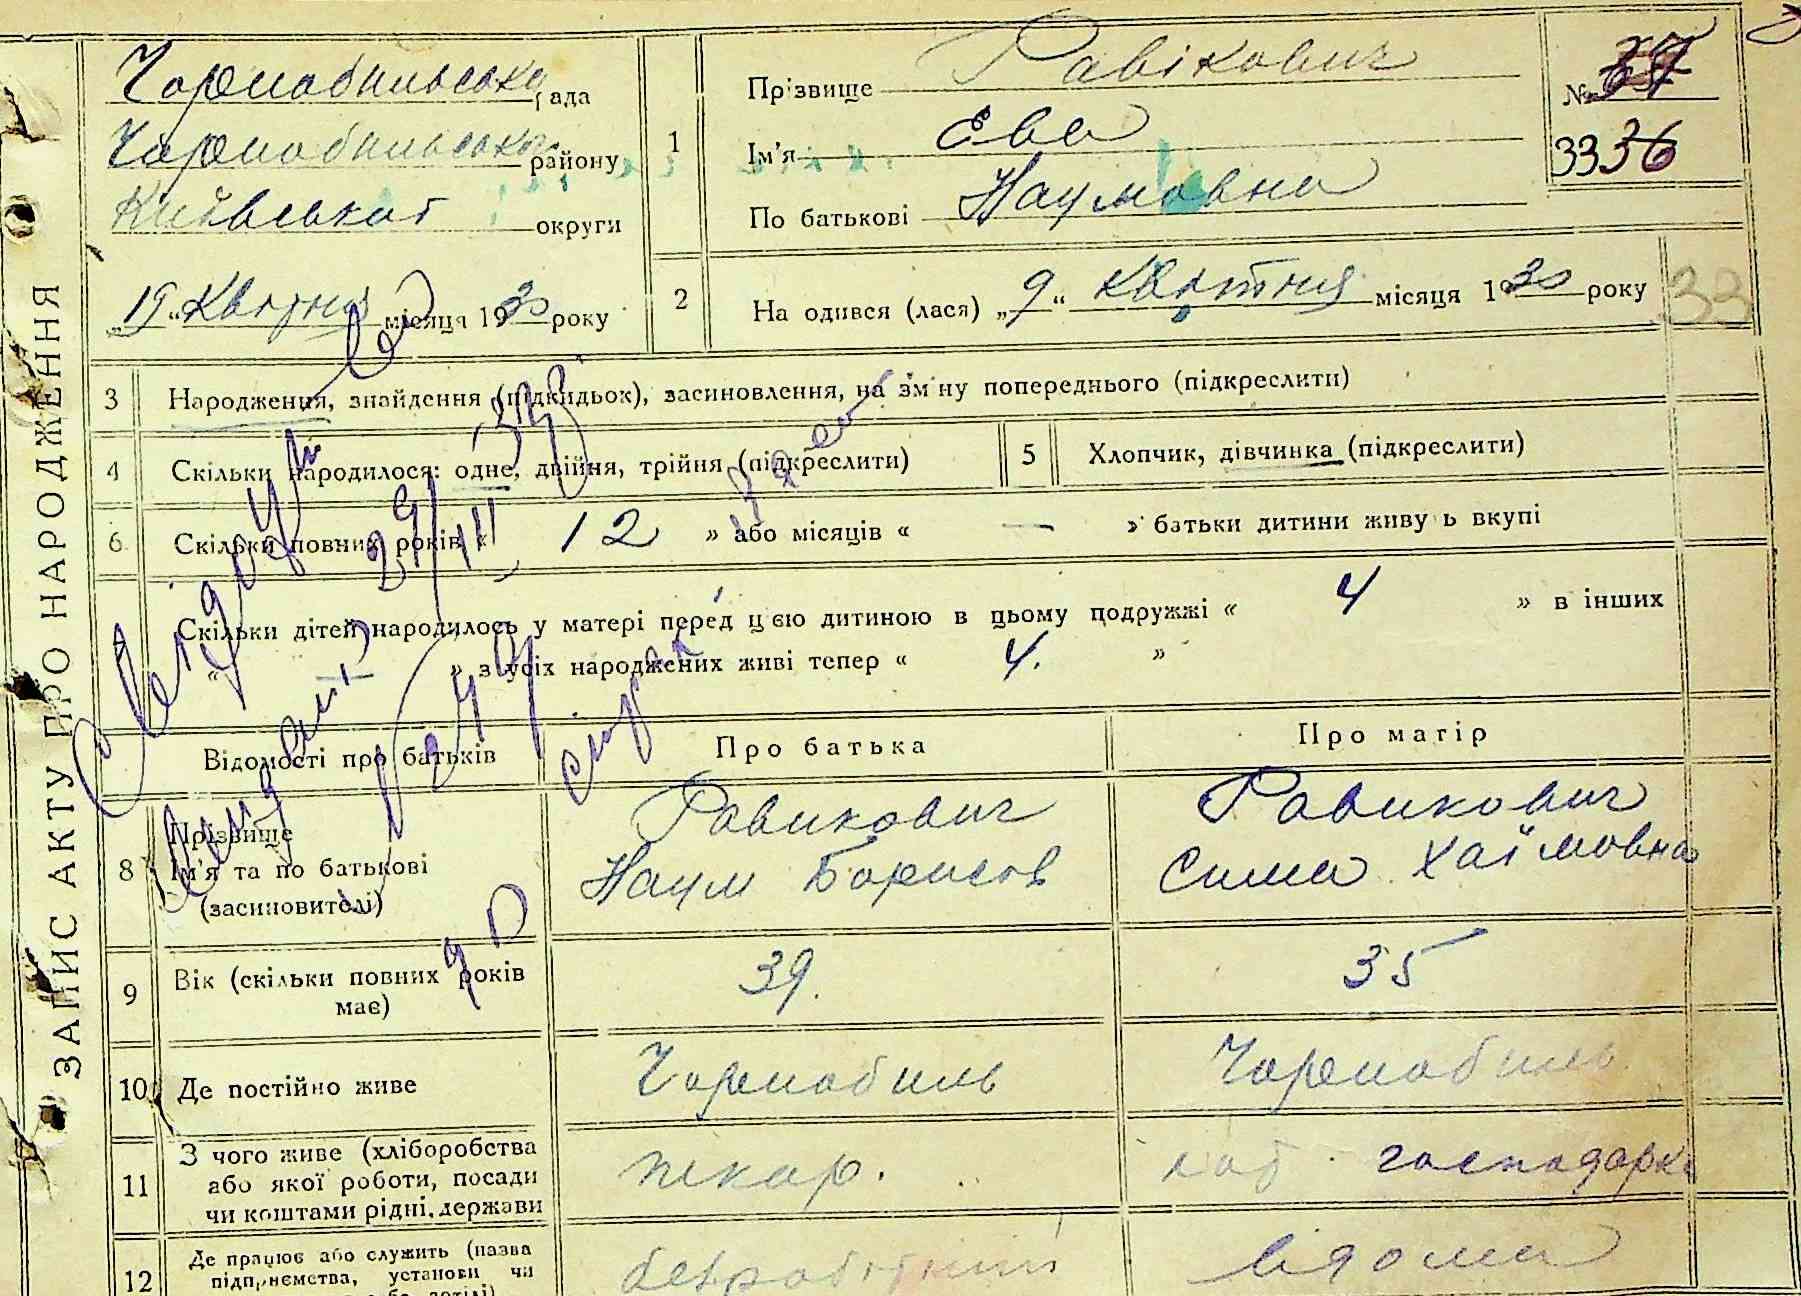 ЗАПИС АКТУ ПРО НАРОДЖЕННЯ
Чорнобильська рада
Чорнобильського району
Київської округи
„19“ Квітня місяця 1930 року
1
Прізвище Равікович
Ім'я Ева
По батькові Наумовна
№ 37
3336
2
На одився (лася) „9“ квітня місяця 1930 року
33
3 Народження, знайдення (підкидьок), засиновлення, на зміну попереднього (підкреслити)
4 Скільки народилося: одне, двійня, трійня (підкреслити)
5 Хлопчик, дівчинка (підкреслити)
6 Скільки повних років « 12 » або місяців « — » батьки дитини живу ь вкупі
Скільки дітей народилось у матері перед цією дитиною в цьому подружжі « 4 » в інших
« » з усіх народжених живі тепер « 4. »
Відомості про батьків
Про батька
Про матір
8 Прізвище
Ім'я та по батькові
(засиновителі)
Равикович
Наум Борисов
Равикович
Сима Хаїмовна
9 Вік (скільки повних років
має)
39.
35
10 Де постійно живе
Чорнобиль
Чорнобиль
11 З чого живе (хліборобства
або якої роботи, посади
чи коштами рідні, держави
пекар.
господарка
12 Де працює або служить (назва
підприємства, установи чи
безробітний
відома